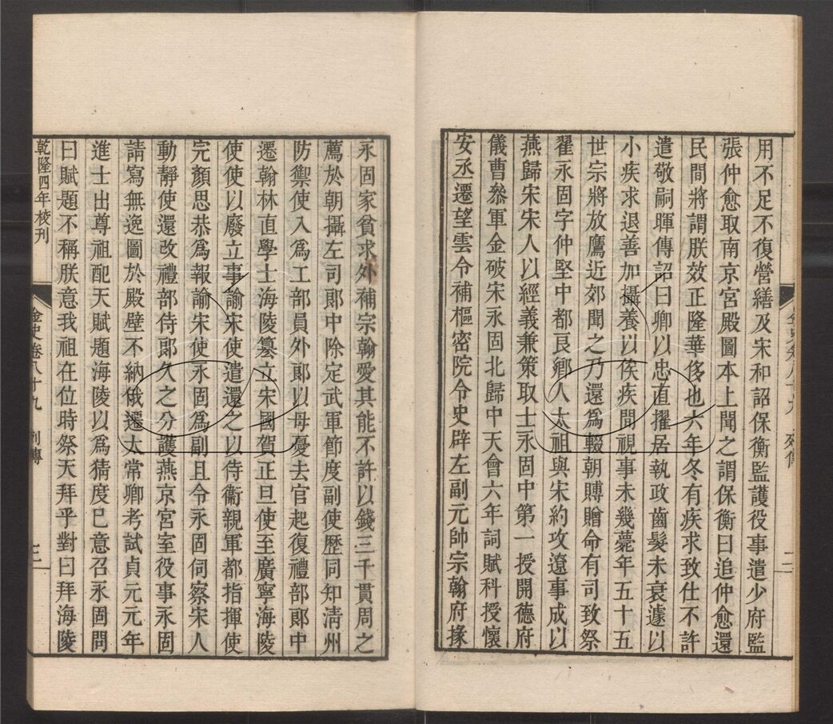 用不足不復營繕及宋和詔保衡監護役事遣少府監
張仲愈取南京宮殿圖本上聞之謂保衡曰追仲愈還
民間將謂朕效正隆華侈也六年冬有疾求致仕不許
遣敬嗣暉傳詔曰卿以忠直擢居執政齒髮未衰遽以
小疾求退善加攝養以俟疾間視事未幾薨年五十五
世宗將放鷹近郊聞之乃還爲輟朝賻贈命有司致祭
翟永固字仲堅中都良鄉人太祖與宋約攻遼事成以
燕歸宋宋人以經義兼策取士永固中第一授開德府
儀曹叅軍金破宋永固北歸中天會六年詞賦科授懷
安丞遷望雲令補樞密院令史辟左副元帥宗翰府掾
永固家貧求外補宗翰愛其能不許以錢三千貫周之
薦於朝攝左司郎中除定武軍節度副使歷同知清州
防禦使入爲工部員外郎以母憂去官起復禮部郎中
遷翰林直學士海陵簒立宋國賀正旦使至廣寧海陵
使使以廢立事諭宋使遣還之以侍衞親軍都指揮使
完顏思恭爲報諭宋使永固爲副且令永固伺察宋人
動靜使還改禮部侍郎久之分護燕京宮室役事永固
請寫無逸圖於殿壁不納俄遷太常卿考試貞元元年
進士出尊祖配天賦題海陵以爲猜度已意召永固問
曰賦題不稱朕意我祖在位時祭天拜乎對曰拜海陵
乾隆四年校刊
金史卷八十九 列傳
三